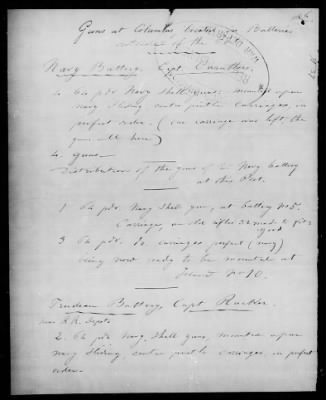 Guns at Columbus located in Batteries
outside of the
Navy Battery, Capt.
4. 64 pdr. Navy Shell guns, mounted upon
navy sliding centre pintle carriages, in
perfect order. (one carriage was left, the
gun sent here)
4. guns
Distribution of the guns of the Navy battery
at this Post.
1 64 pdr. Navy Shell gun, at battery No 5.
Carriage, an old rifled 32 made to fit,
good
3 64 pdr. Do. carriages perfect (navy)
being now ready to be mounted at
Island No 10.
Trudeau Battery, Capt
near R.R. Depot
2. 64 pdr. Navy Shell guns, mounted upon
navy sliding centre pintle carriages, in perfect
order.